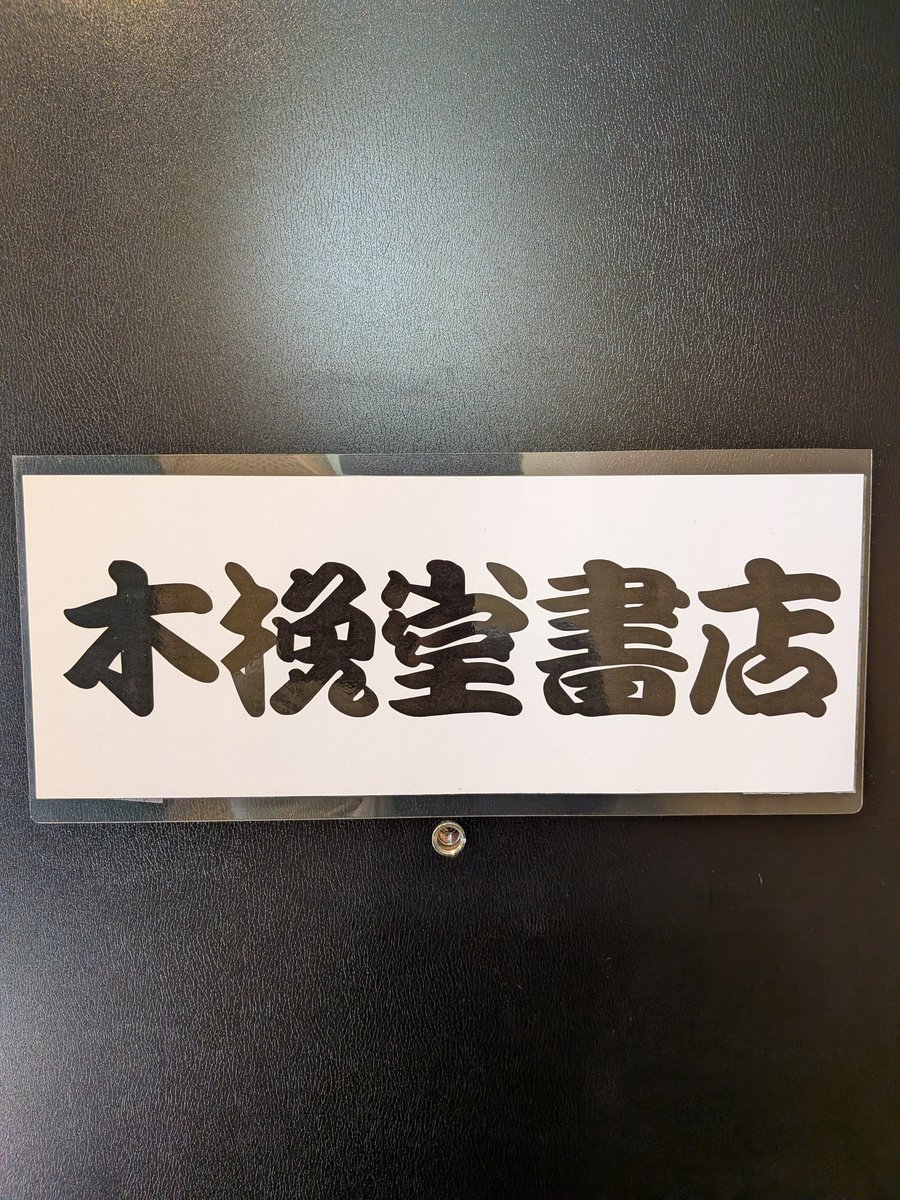 木挽堂書店